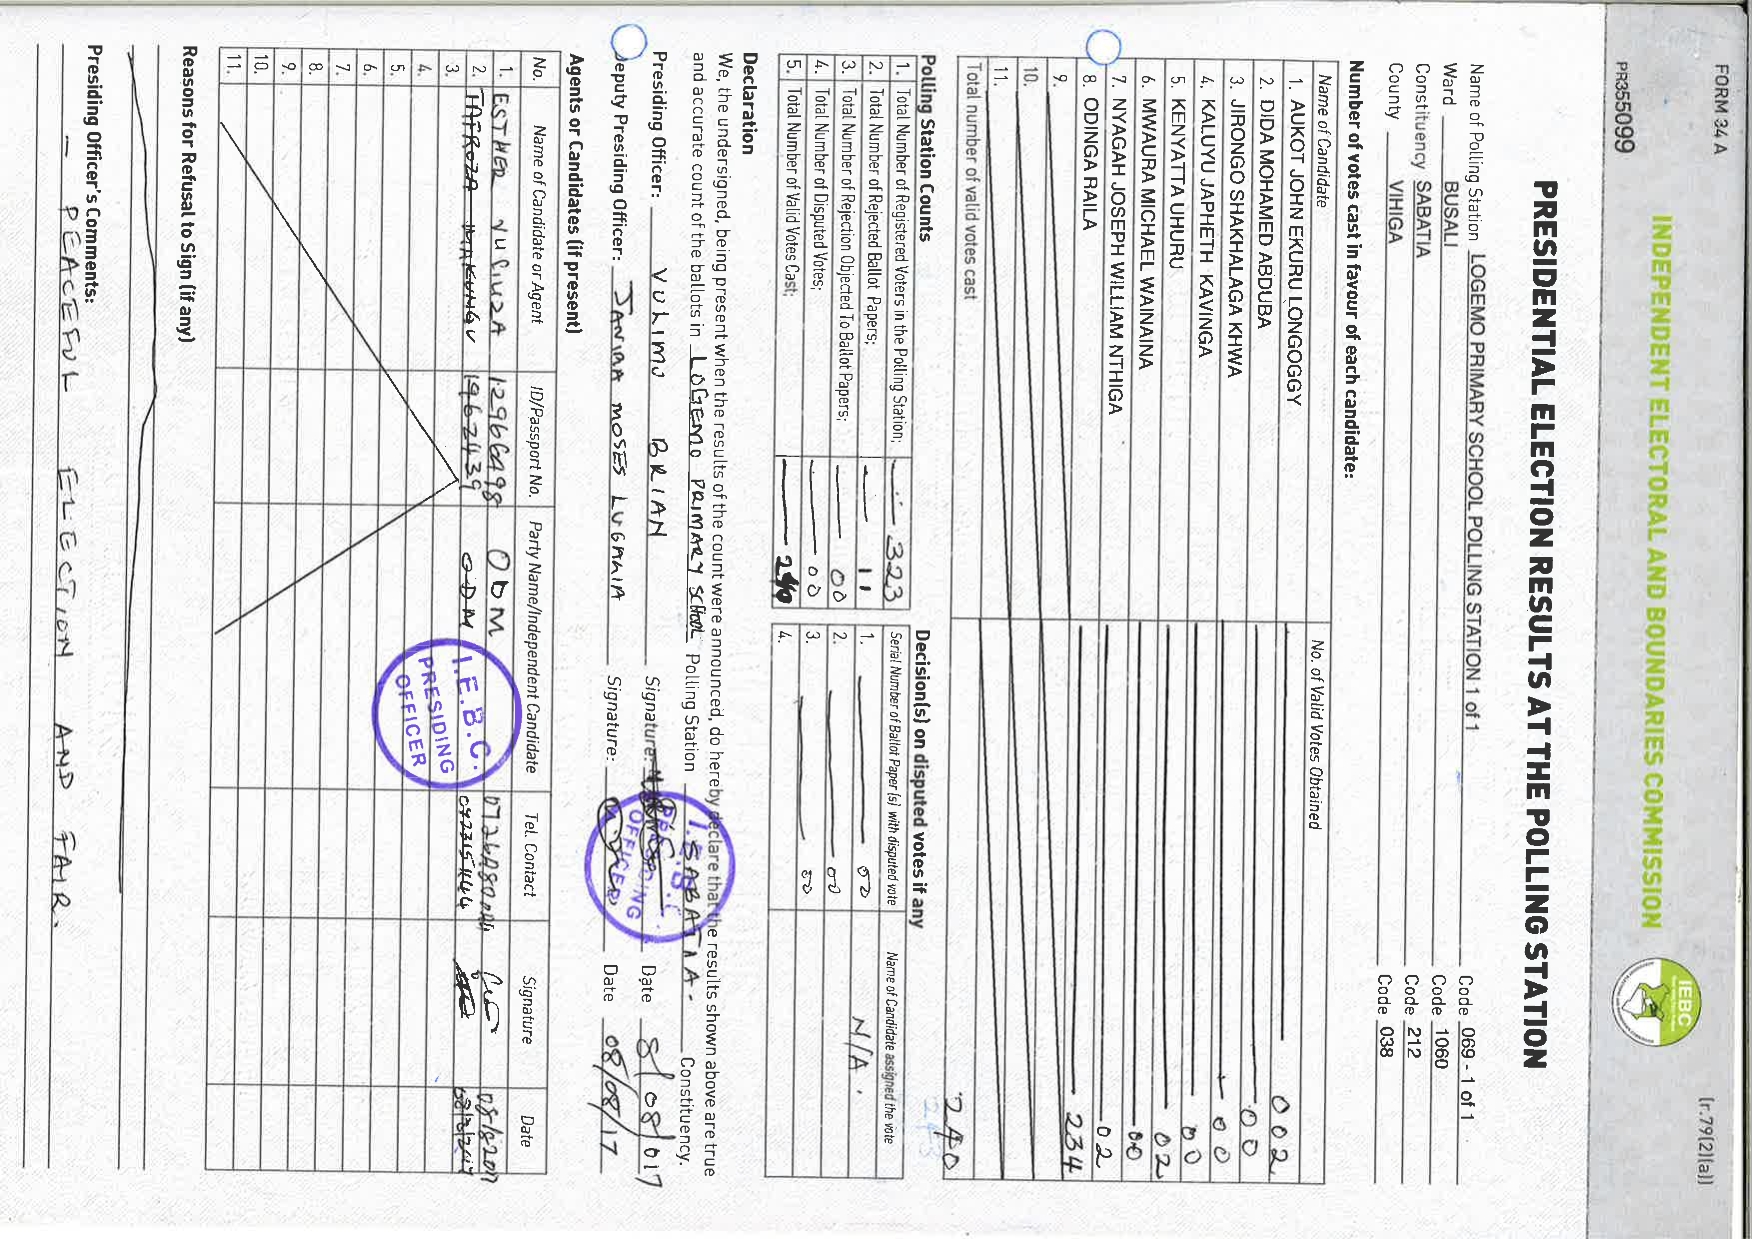 FORM 34 A
(r.79(2)(a))
PR355099
INDEPENDENT ELECTORAL AND BOUNDARIES COMMISSION
IEBC
PRESIDENTIAL ELECTION RESULTS AT THE POLLING STATION
Name of Polling Station LOGEMO PRIMARY SCHOOL POLLING STATION 1 of 1 Code 069 - 1 of 1
Ward BUSALI Code 1060
Constituency SABATIA Code 212
County VIHIGA Code 038
Number of votes cast in favour of each candidate:
Name of Candidate No. of Valid Votes Obtained
1. AUKOT JOHN EKURU LONGOGGY 002
2. DIDA MOHAMED ABDUBA 00
3. JIRONGO SHAKHALAGA KHWA 00
4. KALUYU JAPHETH KAVINGA 00
5. KENYATTA UHURU 02
6. MWAURA MICHAEL WAINAINA 00
7. NYAGAH JOSEPH WILLIAM NTHIGA 02
8. ODINGA RAILA 234
9.
10.
11.
Total number of valid votes cast 240
Polling Station Counts
1. Total Number of Registered Voters in the Polling Station: 323
2. Total Number of Rejected Ballot Papers; 11
3. Total Number of Rejection Objected To Ballot Papers; 00
4. Total Number of Disputed Votes; 00
5. Total Number of Valid Votes Cast; 240
Decision(s) on disputed votes if any
Serial Number of Ballot Paper (s) with disputed vote Name of Candidate assigned the vote
1. 00 N/A.
2. 00
3. 00
4.
Declaration
We, the undersigned, being present when the results of the count were announced, do hereby declare that the results shown above are true
and accurate count of the ballots in LOGEMO PRIMARY SCHOOL Polling Station SABATIA. Constituency.
Presiding Officer: VULIMU BRIAN Signature: Date 8/08/017
Deputy Presiding Officer: MOSES Signature: Date 08/08/17
I.E.B.C.
PRESIDING
OFFICER
Agents or Candidates (if present)
No. Name of Candidate or Agent ID/Passport No. Party Name/Independent Candidate Tel. Contact Signature Date
1. ESTHER 12966498 ODM 08/8/2017
2. 19624439 ODM
3.
4.
5.
6.
7.
8.
9.
10.
11.
I.E.B.C.
PRESIDING
OFFICER
Reasons for Refusal to Sign (if any)
Presiding Officer's Comments:
— PEACEFUL ELECTION AND FAIR.